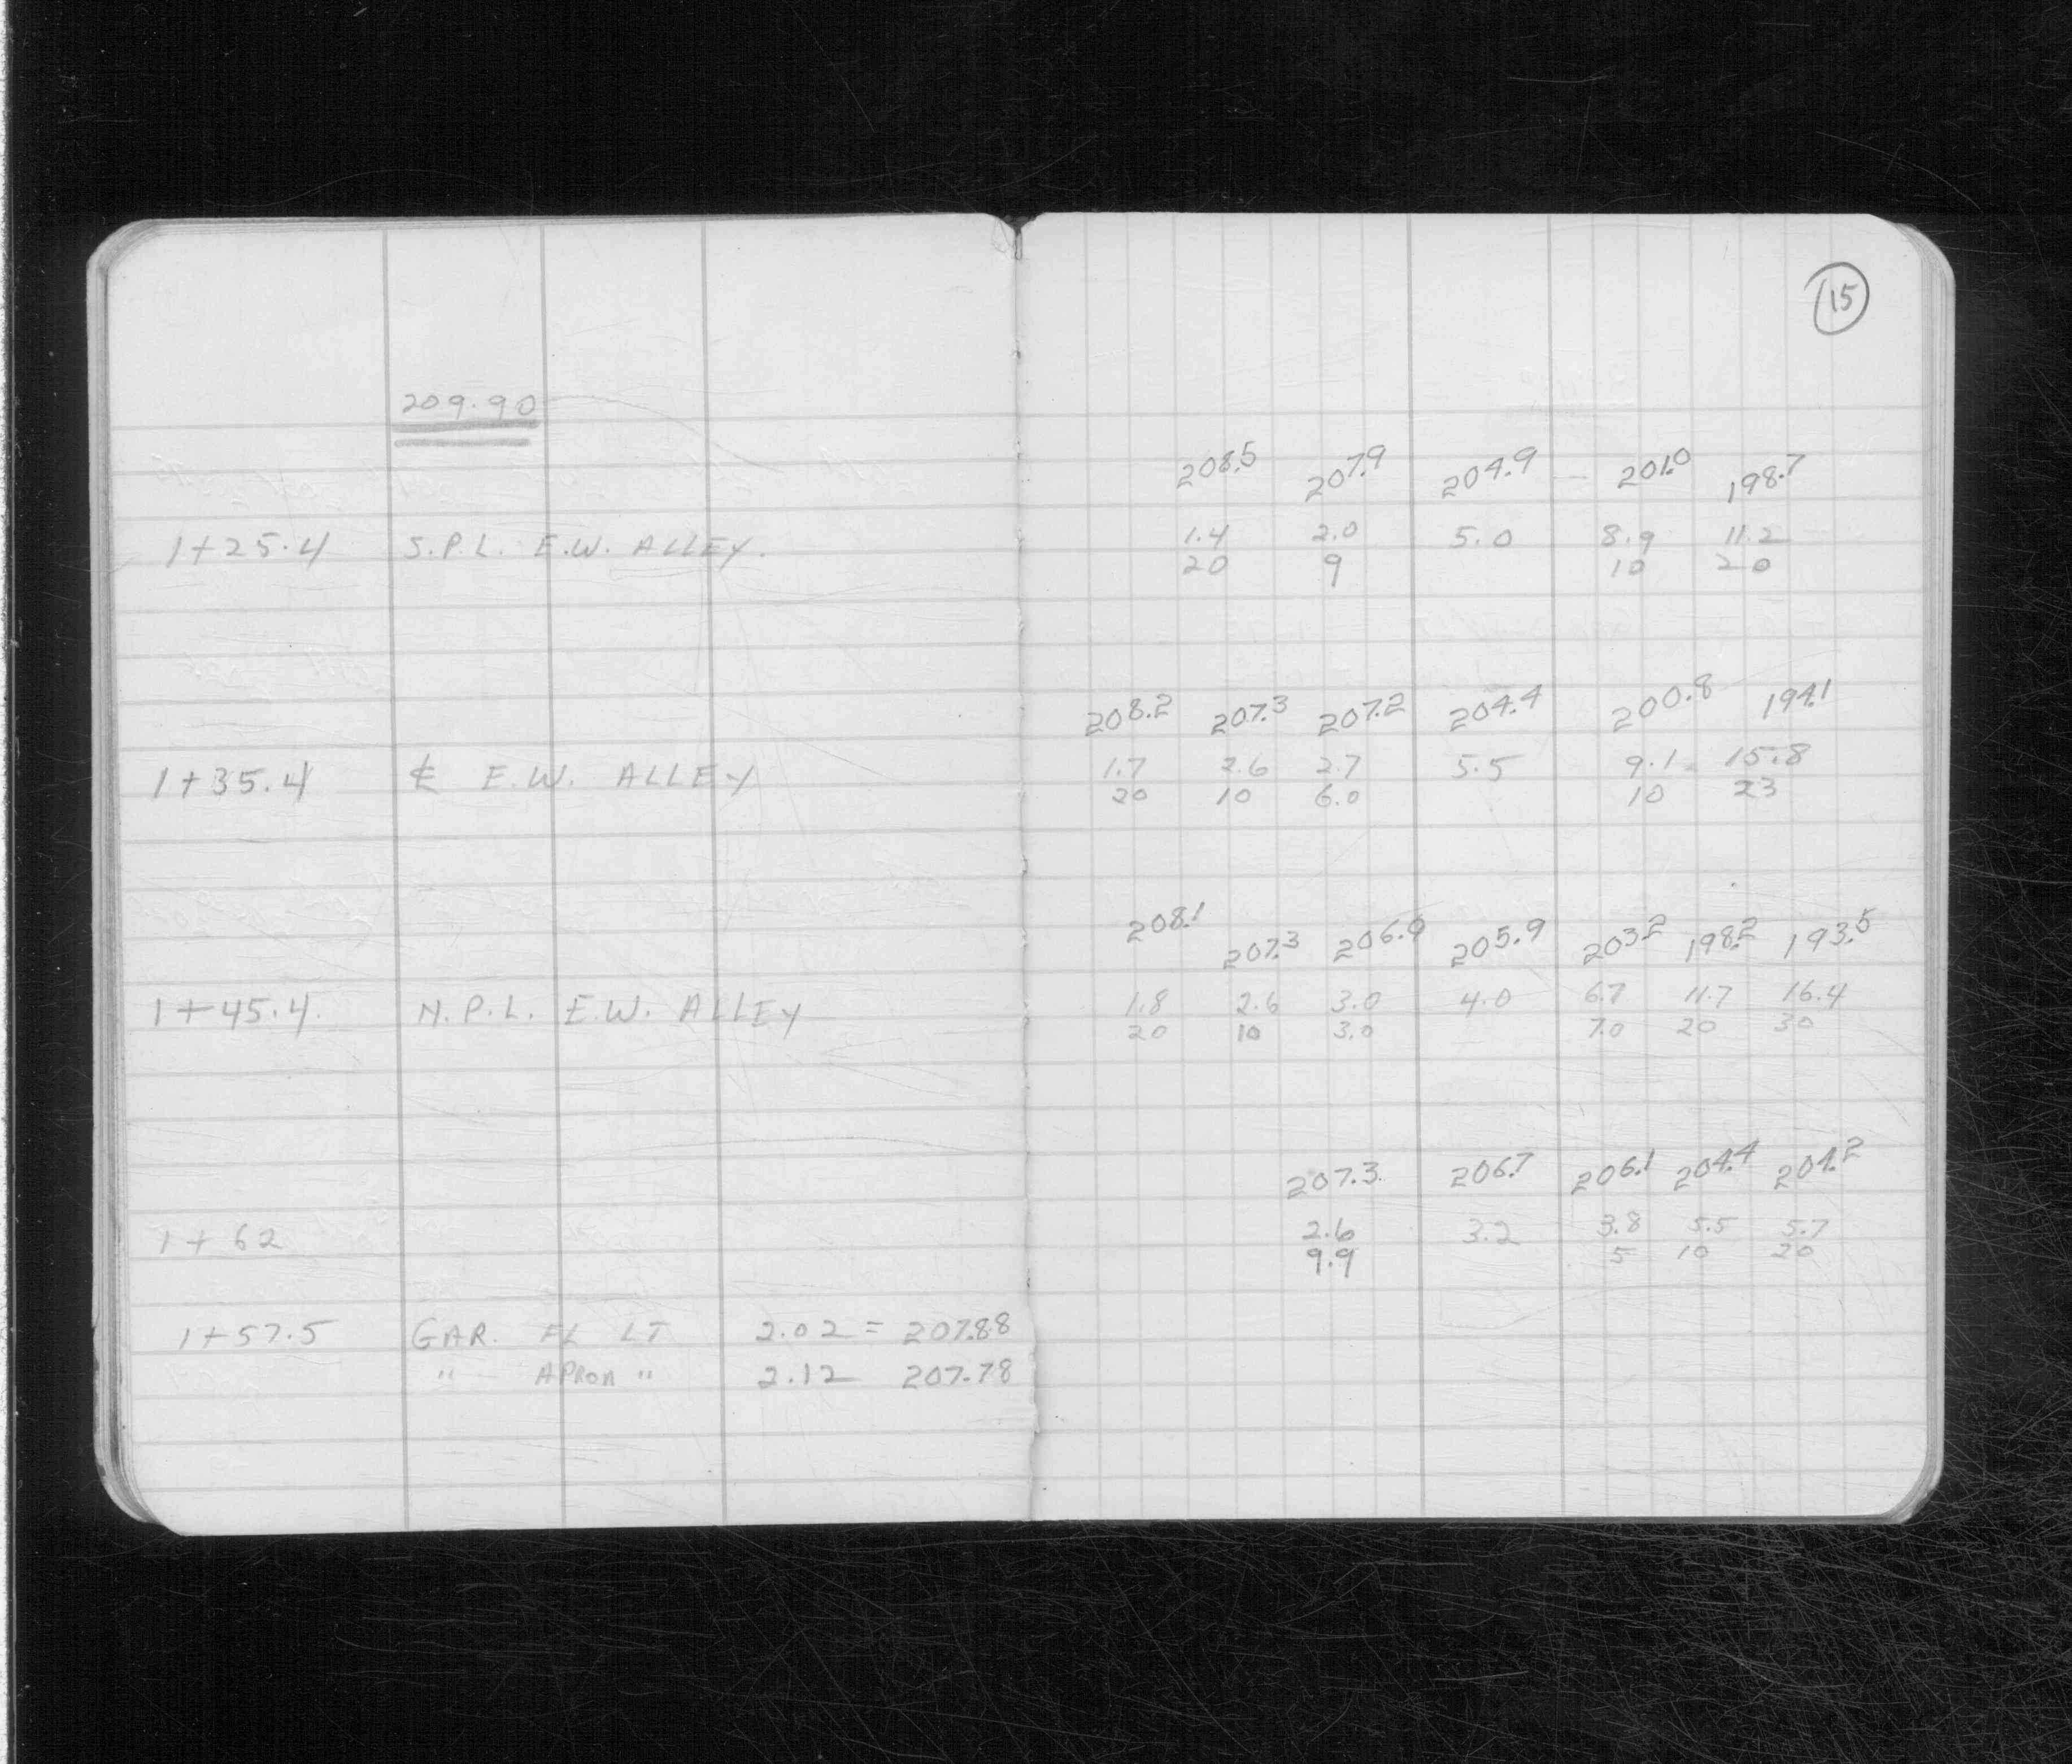 15
209.90
208.5 207.9 204.9 201.0 198.7
1+25.4 S.P.L. E.W. ALLEY. 1.4 2.0 5.0 8.9 11.2
20 9 10 20
208.2 207.3 207.2 204.4 200.8 194.1
1+35.4 ℄ E.W. ALLEY 1.7 2.6 2.7 5.5 9.1 15.8
20 10 6.0 10 23
208.1 207.3 206.9 205.9 203.2 198.2 193.5
1+45.4. N.P.L. E.W. ALLEY 1.8 2.6 3.0 4.0 6.7 11.7 16.4
20 10 3.0 7.0 20 30
207.3. 206.7 206.1 204.4 204.2
1+62 2.6 3.2 3.8 5.5 5.7
9.9 5 10 20
1+57.5 GAR. FL LT 2.02 = 207.88
" APRON " 2.12 207.78